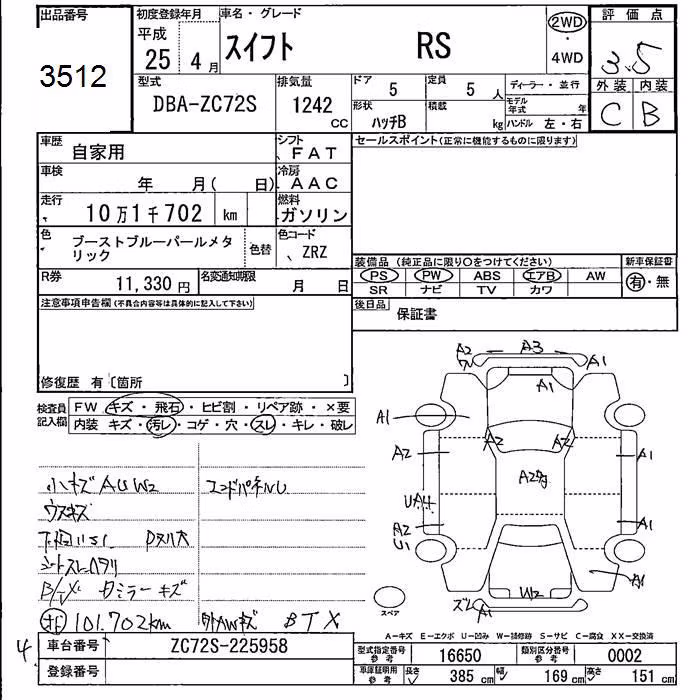 出品番号
3512
初度登録年月
平成
25 4月
車名・グレード
スイフト RS
2WD
・
4WD
評価点
3.5
外装 内装
C B
型式
DBA-ZC72S
排気量
1242
CC
ドア
5
定員
5 人
形状
ハッチB
積載
kg
ディーラー・並行
モデル
年式 年
ハンドル 左・右
車歴
自家用
シフト
、FAT
車検
年 月( 日)
冷房
、AAC
走行
10万1千702 km
燃料
ガソリン
色
ブーストブルーパールメタ
リック
色替
色コード
、ZRZ
R券
11,330 円
名変通知期限
月 日
注意事項申告欄(不具合内容等は具体的に記入して下さい)
修復歴 有〔箇所 〕
セールスポイント(正常に機能するものに限ります)
装備品(純正品に限り○をつけてください)
新車保証書
PS PW ABS エアB AW
SR ナビ TV カワ
有・無
後日品
保証書
検査員
記入欄
FW キズ・飛石・ヒビ割・リペア跡・×要
内装 キズ・汚レ・コゲ・穴・スレ・キレ・破レ
小キズ AU W2
エンドパネルU
ウスキズ
シートスレ ヘタリ
101.702km
BTX
A2 A3 A1
A1
A1
A2
A2 A2
A1
A2
A2 A1
U1
A1
W2
A1
スペア
A-キズ E-エクボ U-凹み W-補修跡 S-サビ C-腐食 XX-交換済
4
車台番号
ZC72S-225958
登録番号
型式指定番号
参考
16650
類別区分番号
参考
0002
車庫証明用
参考
長さ
385 cm
幅
169 cm
高さ
151 cm